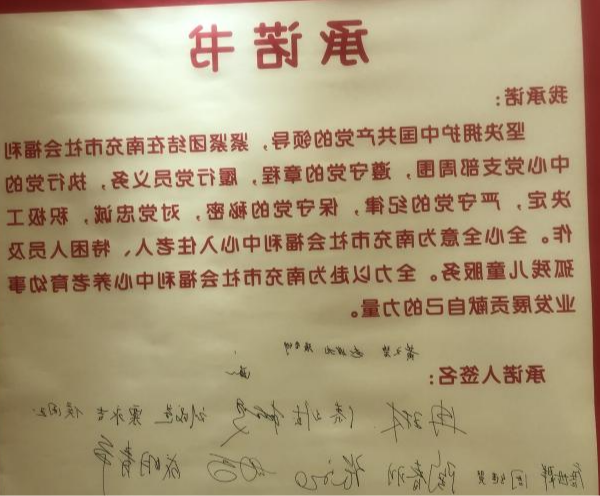 承诺书
我承诺：
坚决拥护中国共产党的领导，紧紧团结在南充市社会福利
中心党支部周围，遵守党的章程，履行党员义务，执行党的
决定，严守党的纪律，保守党的秘密，对党忠诚，积极工
作。全心全意为南充市社会福利中心入住老人、特困人员及
孤残儿童服务。全力以赴为南充市社会福利中心养老育幼事
业发展贡献自己的力量。
承诺人签名：